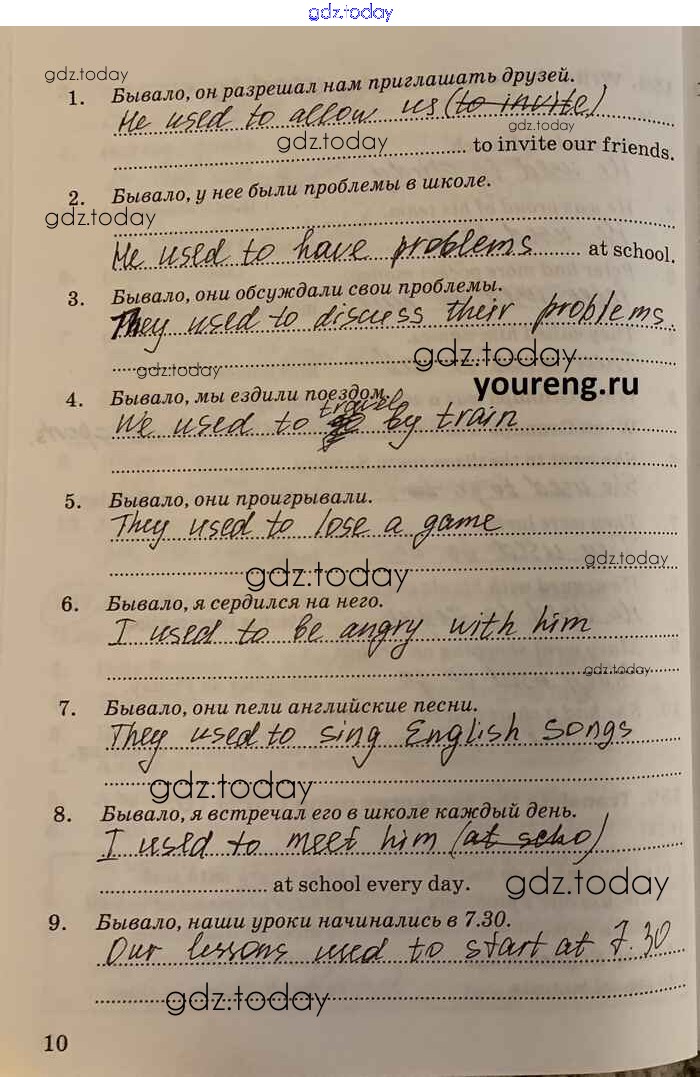 gdz.today
gdz.today
1. Бывало, он разрешал нам приглашать друзей.
He used to allow us (to invite)
gdz.today
gdz.today
to invite our friends.
2. Бывало, у нее были проблемы в школе.
gdz.today
He used to have problems at school.
3. Бывало, они обсуждали свои проблемы.
They used to discuss their problems.
gdz.today
gdz.today
youreng.ru
4. Бывало, мы ездили поездом.
travel
We used to go by train
5. Бывало, они проигрывали.
They used to lose a game
gdz.today
gdz.today
6. Бывало, я сердился на него.
I used to be angry with him
gdz.today
7. Бывало, они пели английские песни.
They used to sing English songs
gdz.today
8. Бывало, я встречал его в школе каждый день.
I used to meet him (at scho)
at school every day. gdz.today
9. Бывало, наши уроки начинались в 7.30.
Our lessons used to start at 7.30
gdz.today
10